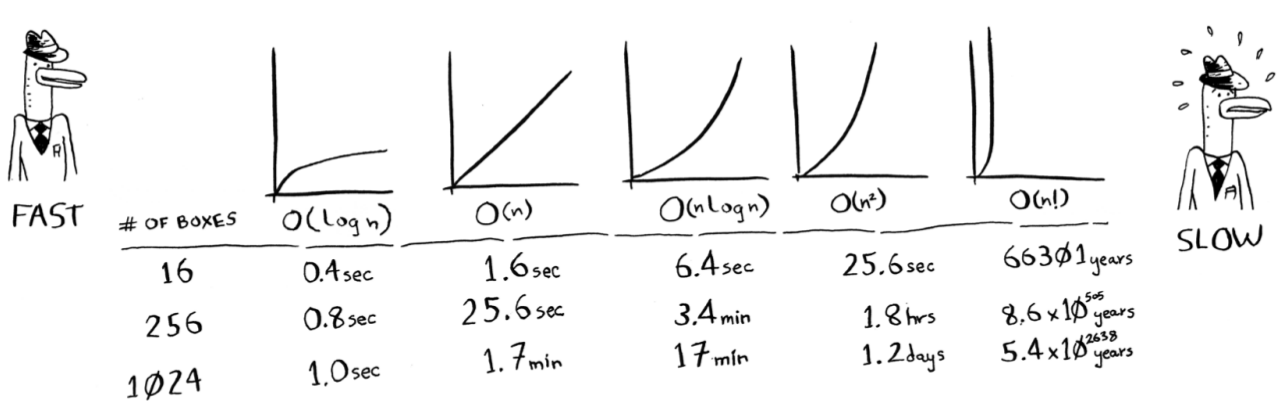 FAST
# OF BOXES O(log n) O(n) O(n log n) O(n²) O(n!)
SLOW
16 0.4 sec 1.6 sec 6.4 sec 25.6 sec 663Ø1 years
256 0.8 sec 25.6 sec 3.4 min 1.8 hrs 8.6 x 1Ø⁵⁰⁵ years
1Ø24 1.0 sec 1.7 min 17 min 1.2 days 5.4 x 1Ø²⁶³⁸ years